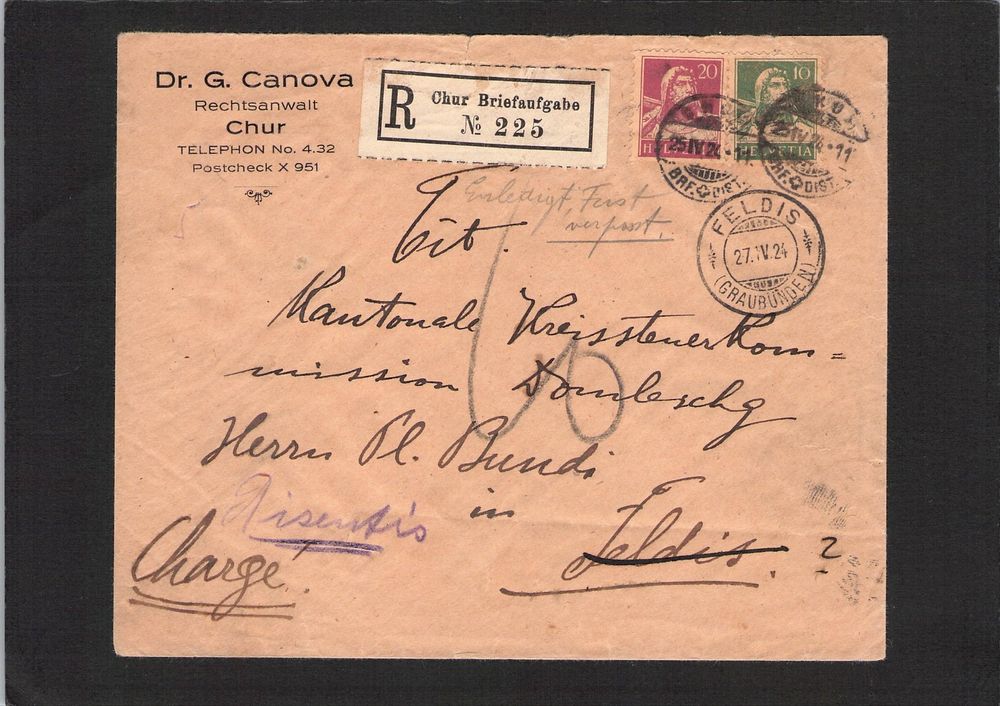 Dr. G. Canova
Rechtsanwalt
Chur
TELEPHON No. 4.32
Postcheck X 951
R Chur Briefaufgabe
№ 225
20
HELVETIA
10
HELVETIA
25.IV.24·11
BRF. DIST.
25.IV.24·11
BRF. DIST.
FELDIS
27.IV.24
(GRAUBÜNDEN)
Erledigt, Frist
verpasst.
Tit.
Kantonale Kreissteuerkom=
mission Domleschg
Herrn Pl. Bundi
in
Disentis
Feldis.
Chargé.
2